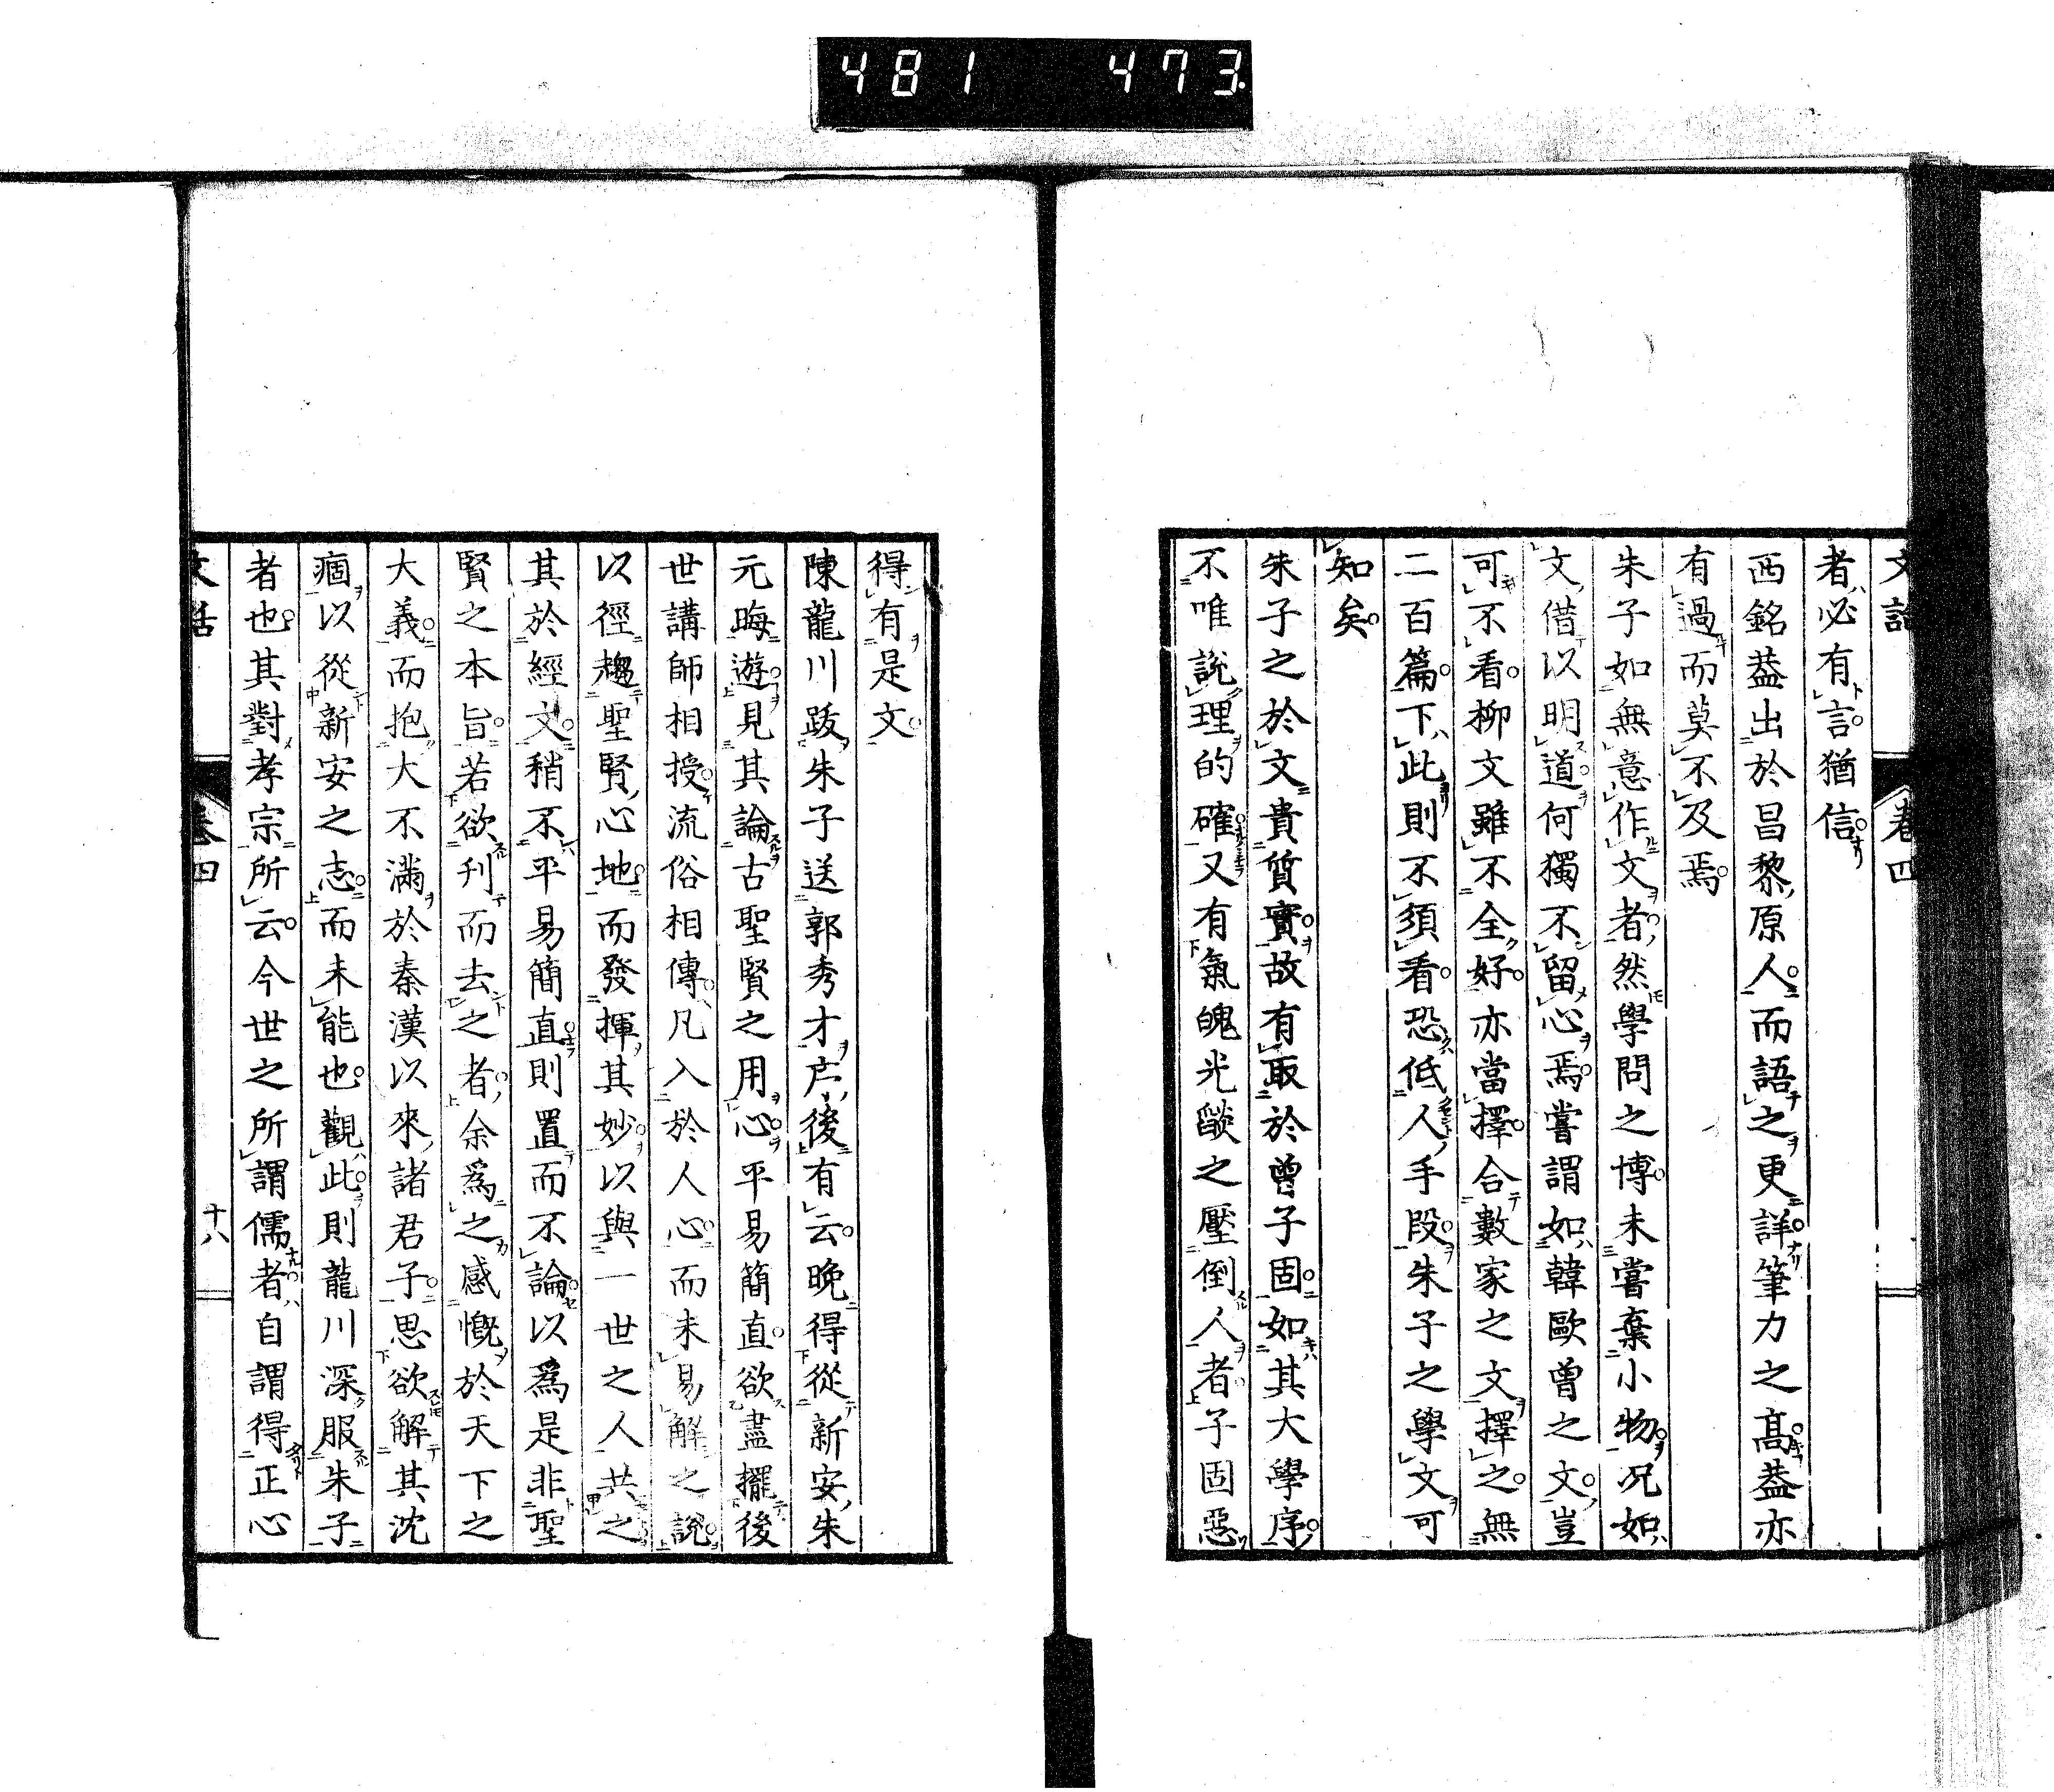 481 473
文話 卷四
者必有言猶信
西銘蓋出於昌黎原人而語之更詳筆力之高蓋亦
有過而莫不及焉
朱子如無意作文者然學問之博未嘗棄小物况如
文借以明道何獨不留心焉嘗謂如韓歐曾之文豈
可不看柳文雖不全好亦當擇合數家之文擇之無
二百篇下此則不須看恐低人手段朱子之學文可
知矣
朱子之於文貴質實故有取於曾子固如其大學序
不唯說理的確又有氣魄光燄之壓倒人者子固惡
得有是文
陳龍川跋朱子送郭秀才序後有云晚得從新安朱
元晦遊見其論古聖賢之用心平易簡直欲盡擺後
世講師相授流俗相傳凡入於人心而未易解之說
以徑趨聖賢心地而發揮其妙以與一世之人共之
其於經文稍不平易簡直則置而不論以爲是非聖
賢之本旨若欲刊而去之者余爲之感慨於天下之
大義而抱大不滿於秦漢以來諸君子思欲解其沈
痼以從新安之志而未能也觀此則龍川深服朱子
者也其對孝宗所云今世之所謂儒者自謂得正心
文話 卷四 十八